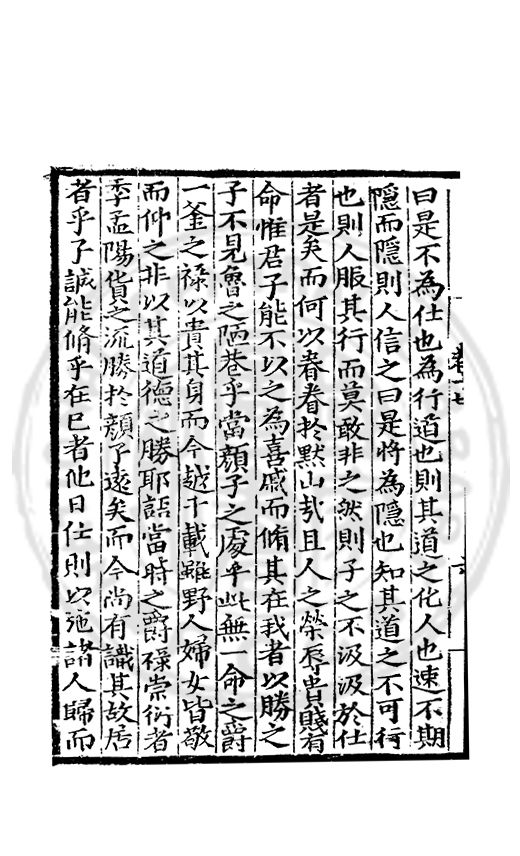 曰是不為仕也為行道也則其道之化人也速不期
隱而隱則人信之曰是將為隱也知其道之不可行
也則人服其行而莫敢非之然則子之不汲汲於仕
者是矣而何以眷眷於默山哉且人之榮辱貴賤有
命惟君子能不以之為喜戚而脩其在我者以勝之
子不見魯之陋巷乎當顏子之處乎此無一命之爵
一釜之祿以貴其身而今越千載雖野人婦女皆敬
而仰之非以其道德之勝耶語當時之爵祿崇衍者
季孟陽貨之流勝於顏子遠矣而今尚有識其故居
者乎子誠能脩乎在已者他日仕則以施諸人歸而
卷十七
六